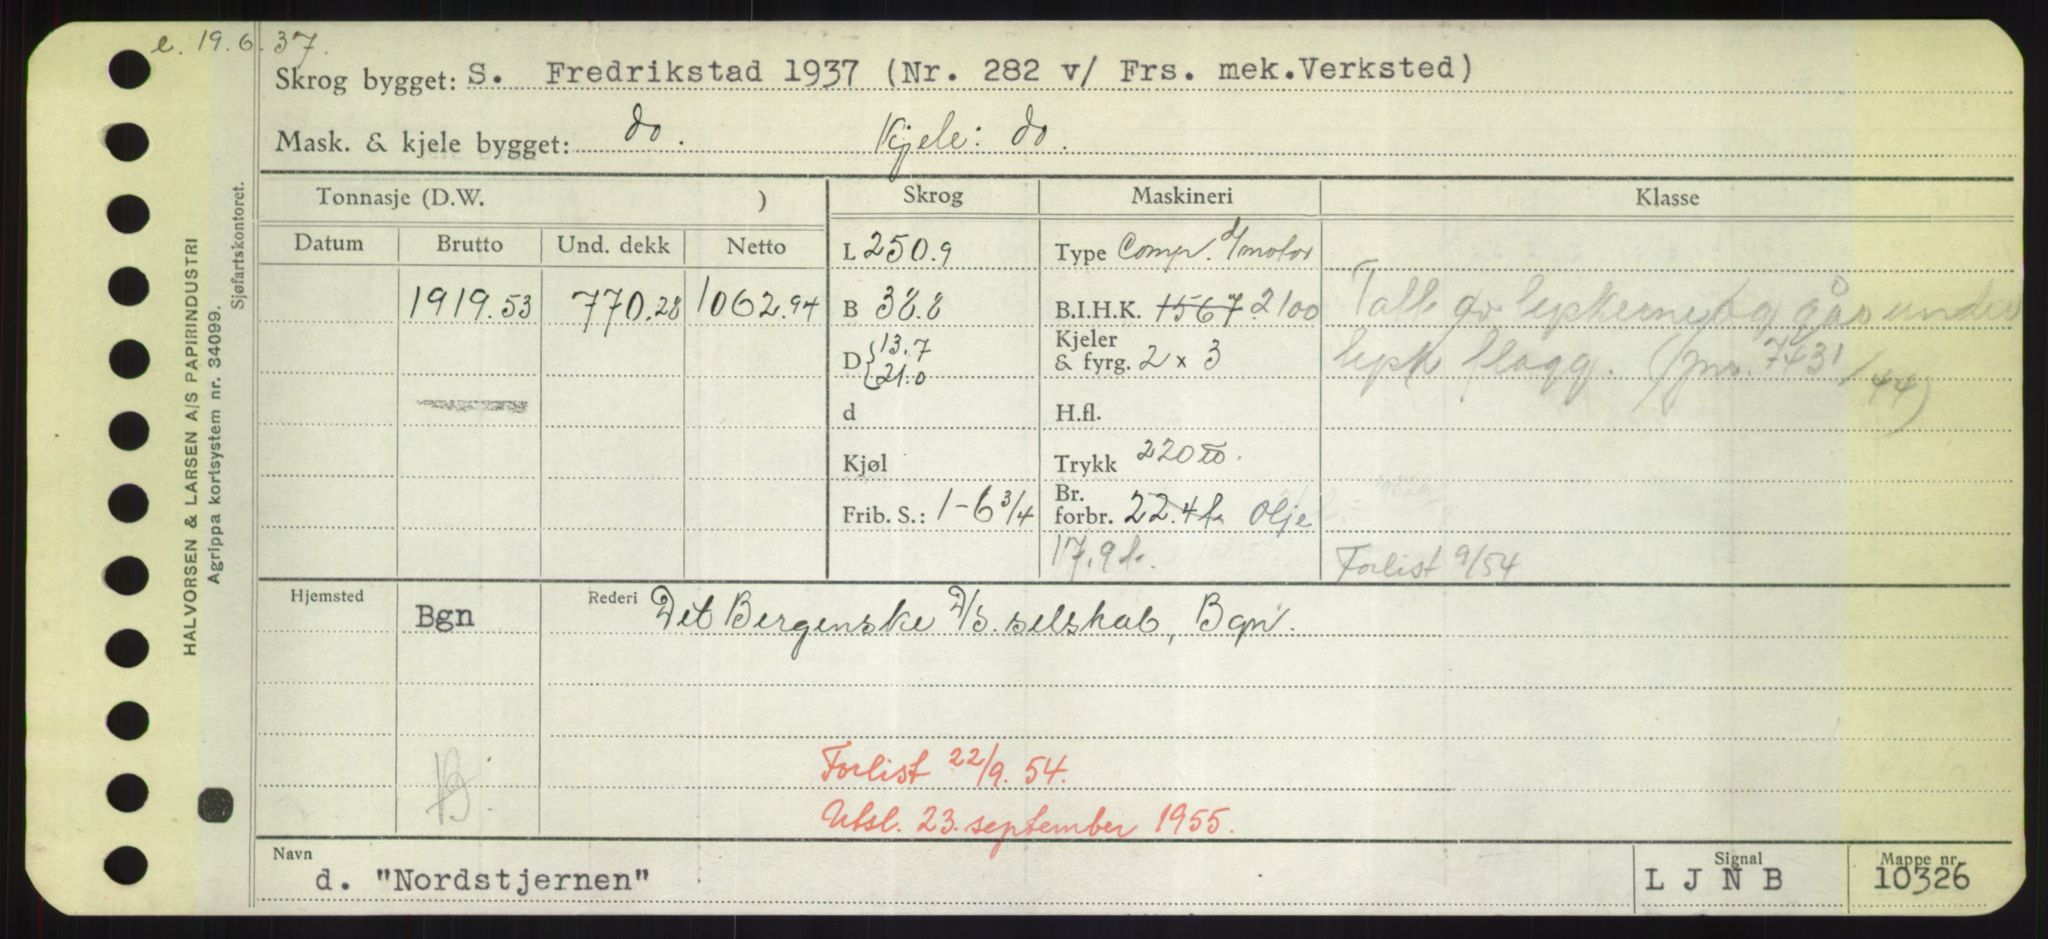 e. 19.6.37.
Skrog bygget: S. Fredrikstad 1937 (Nr. 282 v/ Frs. mek.Verksted)
Mask. & kjele bygget: do. Kjele: do.
Tonnasje (D.W. ) Skrog Maskineri Klasse
Datum Brutto Und. dekk Netto
L 250.9 Type Comp. d/motor
1919.53 770.28 1062.94 B 38.8 B.I.H.K. 1567 2100 Tatt av tyskerne og går under
D { 13.7 21.0 Kjeler & fyrg. 2 x 3 tysk flagg. (jnr. 7431/44)
d H.fl.
Kjøl Trykk 220
Frib. S.: 1-6 3/4 Br. forbr. 22.4 t. Olje
17.9 t. Forlist 9/54
Hjemsted Bgn Rederi Det Bergenske D/S. selskab, Bgn.
Forlist 22/9. 54.
Utsl. 23. september 1955.
Navn Signal Mappe nr.
d. "Nordstjernen" L J N B 10326
HALVORSEN & LARSEN A/S PAPIRINDUSTRI
Agrippa kortsystem nr. 34099.
Sjøfartskontoret.